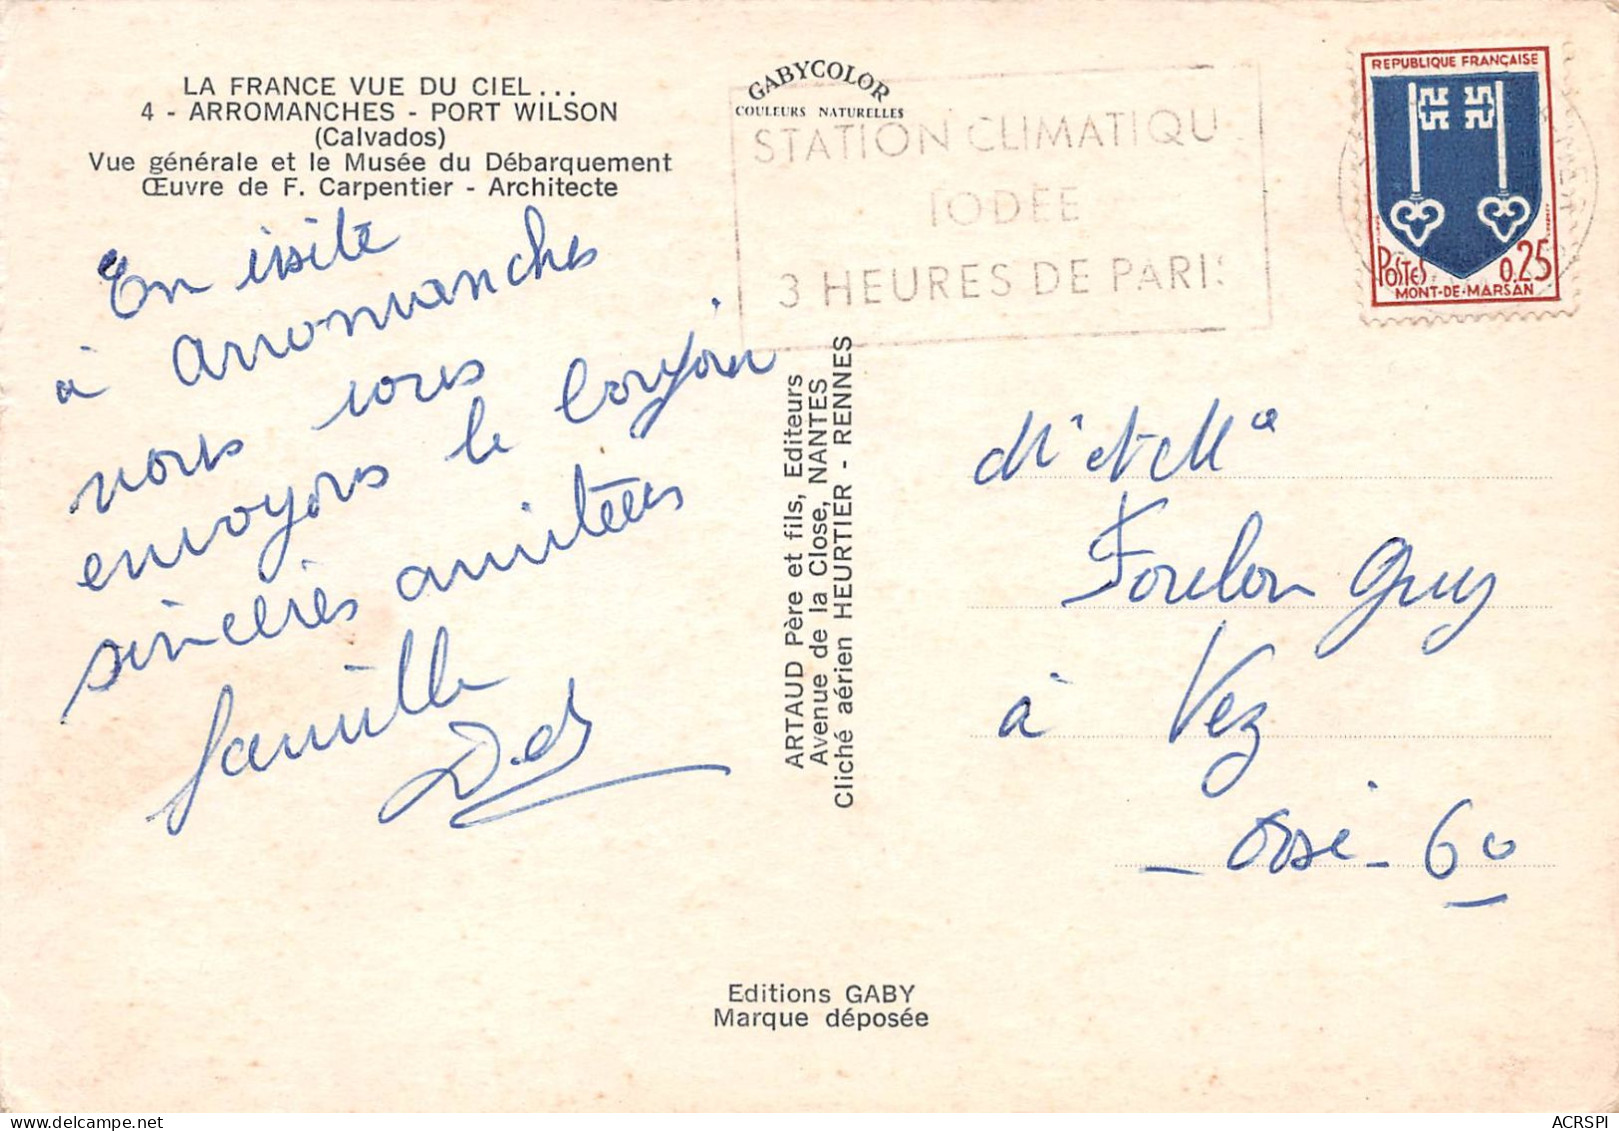 LA FRANCE VUE DU CIEL...
4 - ARROMANCHES - PORT WILSON
(Calvados)
Vue générale et le Musée du Débarquement
Œuvre de F. Carpentier - Architecte
En visite
à Arromanches
nous vous
envoyons le bonjour
sincères amitiées
famille
GABYCOLOR
COULEURS NATURELLES
STATION CLIMATIQU
IODÉE
3 HEURES DE PARIS
REPUBLIQUE FRANÇAISE
POSTES 0,25
MONT-DE-MARSAN
ARTAUD Père et fils, Editeurs
Avenue de la Close, NANTES
Cliché aérien HEURTIER - RENNES
Mr et Me
Foulon Guy
à Vez
- Oise - 60
Editions GABY
Marque déposée
ACRSPI